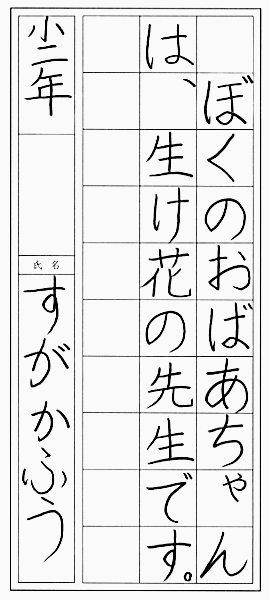 ぼくのおばあちゃん
は、生け花の先生です。
小二年
氏名
すがかふう